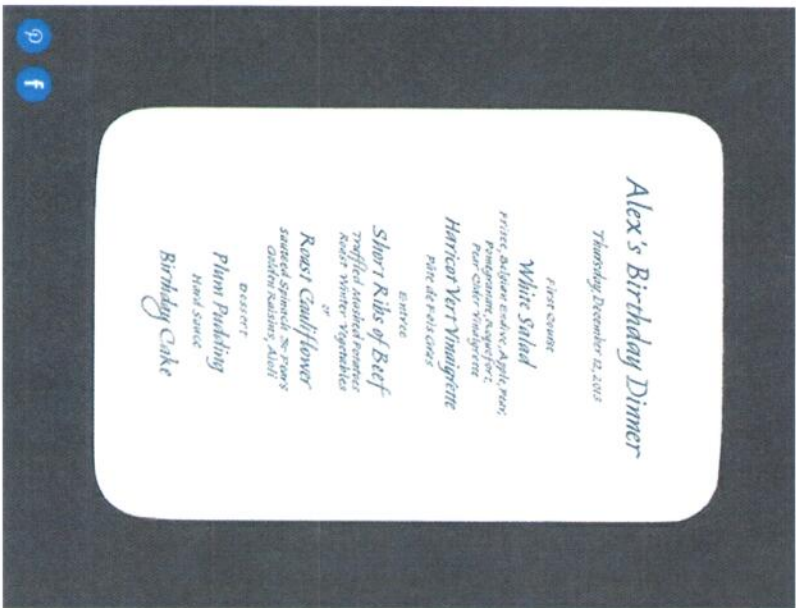 Alex's Birthday Dinner
Thursday December 12, 2013
First Course
White Salad
Frisee, Belgian Endive, Apple, Pear,
Pomegranate, Roquefort,
Pear Cider Vinaigrette
Haricot Vert Vinaigrette
Pâte de Fois Gras
Entrée
Short Ribs of Beef
Truffled Mashed Potatoes
Roast Winter Vegetables
or
Roast Cauliflower
Sauteed Spinach & Pears
Golden Raisins, Aioli
Dessert
Plum Pudding
Hard Sauce
Birthday Cake